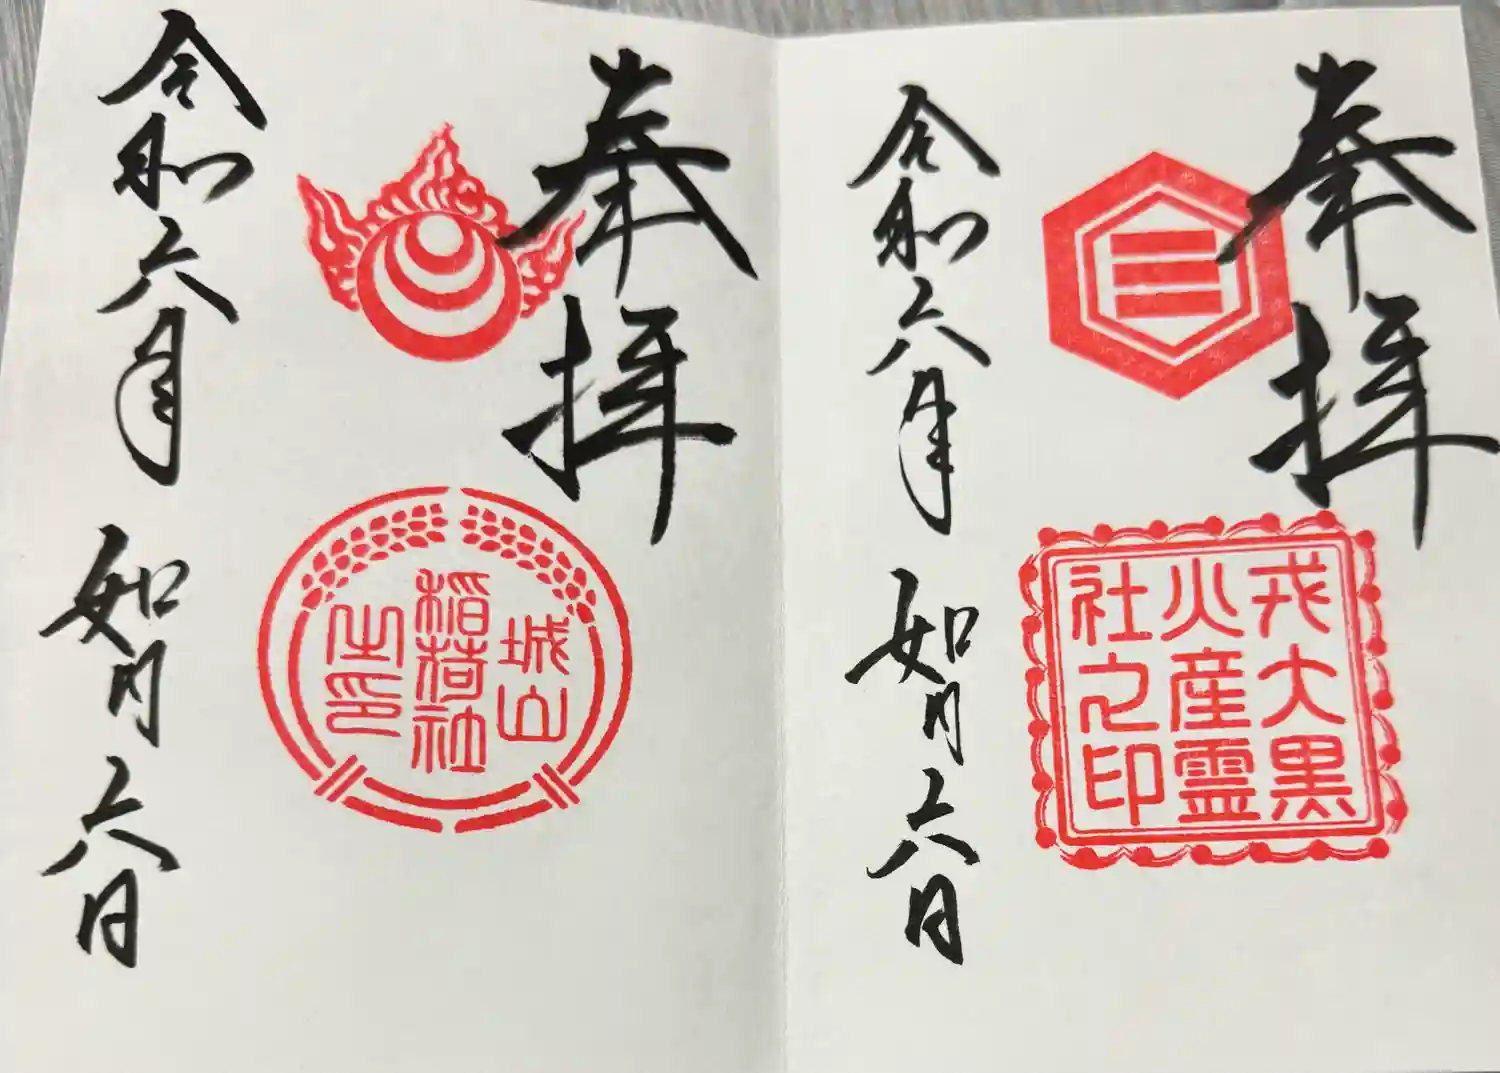 奉拝
戎大黒
火産霊
社之印
令和六年 如月六日
奉拝
城山
稲荷社
之印
令和六年 如月六日